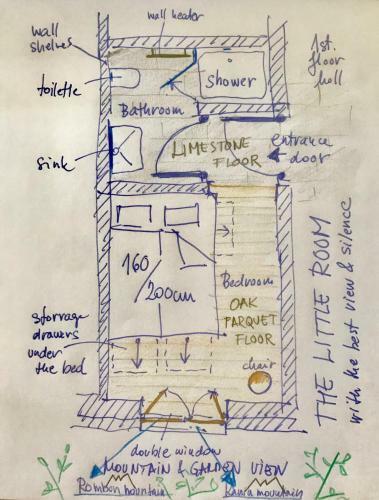 wall heater
wall
shelves
1st.
floor
hall
toilette
shower
Bathroom
LIMESTONE
FLOOR
entrance
door
sink
160/200cm
Bedroom
OAK
PARQUET
FLOOR
storrage
drawers
under
the bed
chair
THE LITTLE ROOM
with the best view & silence
double window
MOUNTAIN & GARDEN VIEW
Rombon mountain
Kawa mountain